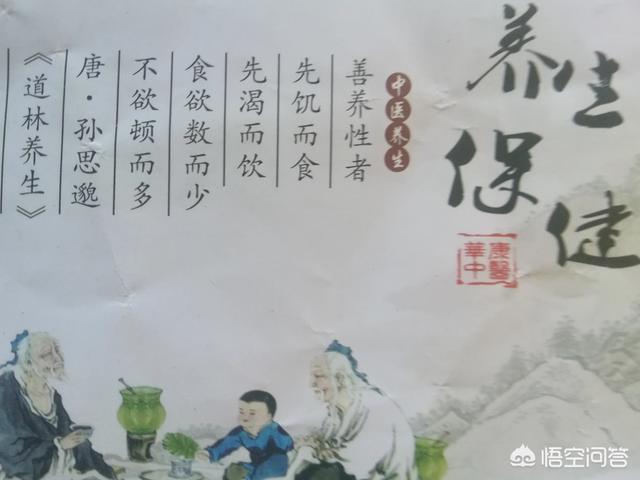 养生保健
康醫
華中
中医养生
善养性者
先饥而食
先渴而饮
食欲数而少
不欲顿而多
唐·孙思邈
《道林养生》
悟空问答